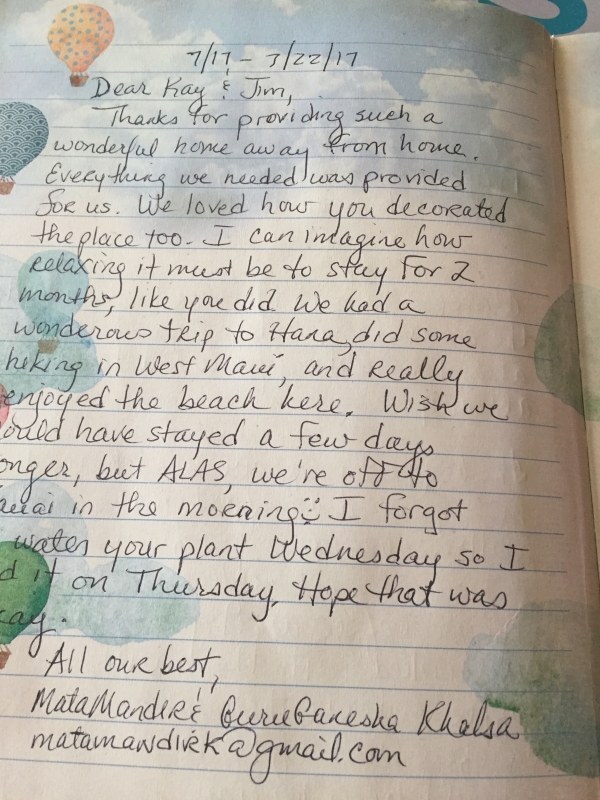 7/17 - 3/22/17
Dear Kay & Jim,
Thanks for providing such a
wonderful home away from home.
Everything we needed was provided
for us. We loved how you decorated
the place too. I can imagine how
relaxing it must be to stay for 2
months, like you did. We had a
wonderous trip to Hana, did some
hiking in West Maui, and really
enjoyed the beach here. Wish we
ould have stayed a few days
onger, but ALAS, we're off to
auai in the morning :) I forgot
water your plant Wednesday so I
d it on Thursday. Hope that was
kay.
All our best,
MataMandir & GuruGanesha Khalsa
matamandirk@gmail.com